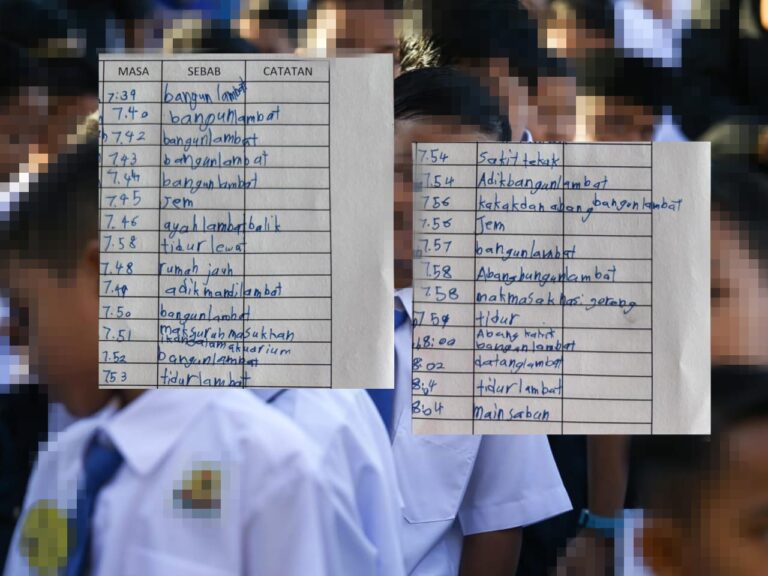 MASA SEBAB CATATAN
7:39 bangun lambat
7.40 bangunlambat
7.42 bangunlambat
7.43 bangunlambat
7.44 bangunlambat
7.45 Jem
7.46 ayahlambatbalik
7.58 tidurlewa
7.48 rumah jauh
7.49 adikmandilambat
7.50 bangunlambat
7.51 maksuruhmasukkan
ikandalamakuarium
7.52 bangunlambat
753 tidurlambat
7.54 sakittekak
7.54 Adikbangunlambat
756 kakakdanabangbangunlambat
7.56 Jem
7.57 bangunlambat
7.58 Abangbungunlambat
7.58 makmasaknasi goreng
7.59 tidur
8:00 Abang
bangunlambat
8:02 datanglambat
8:04 tidurlambat
8:04 mainsabun